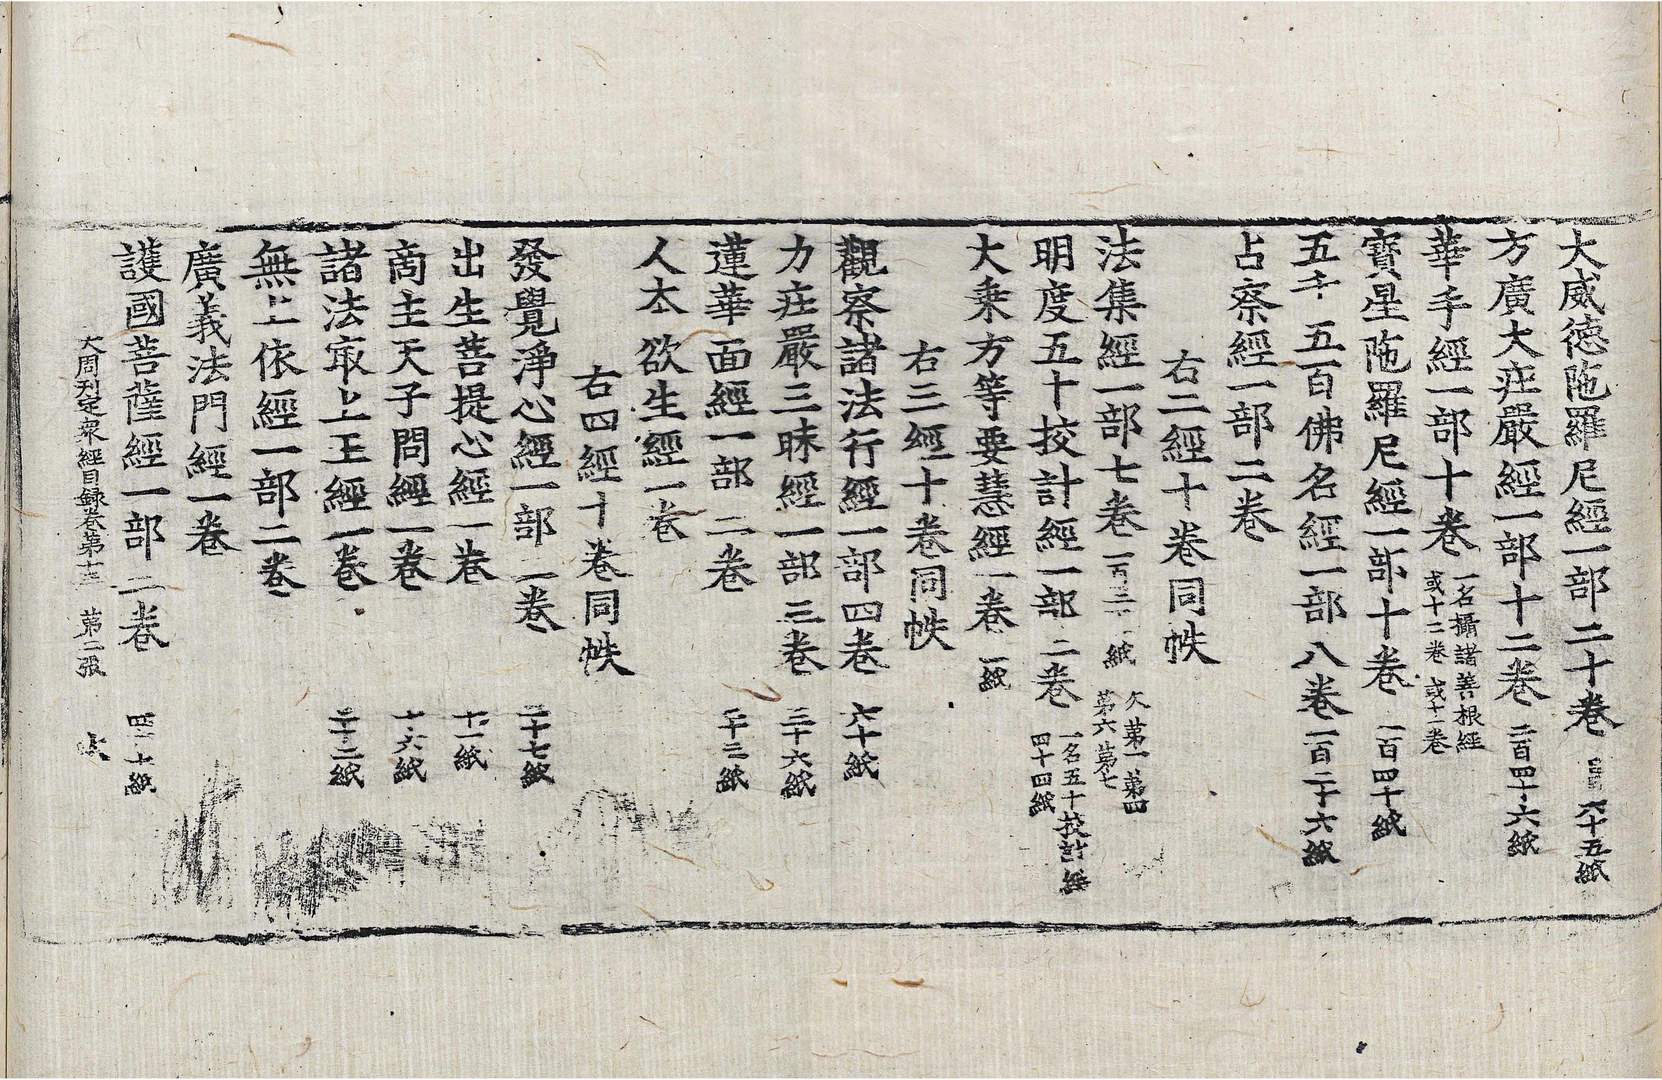 大威德陁羅尼經一部二十卷 六十五紙
方廣大莊嚴經一部十二卷 二百四十六紙
華手經一部十卷 一名攝諸善根經 或十二卷 或十一卷
寶星陁羅尼經一部十卷 一百四十紙
五千五百佛名經一部八卷 一百二十六紙
占察經一部二卷
右二經十卷同帙
法集經一部七卷 一百二十紙 欠第一第四 第六第七
明度五十挍計經一部二卷 一名五十挍計經 四十四紙
大乘方等要慧經一卷 一紙
右三經十卷同帙
觀察諸法行經一部四卷 六十紙
力莊嚴三昧經一部三卷 三十六紙
蓮華面經一部二卷 二十二紙
人本欲生經一卷
右四經十卷同帙
發覺淨心經一部一卷 二十七紙
出生菩提心經一卷 十一紙
商主天子問經一卷 十六紙
諸法㝡上王經一卷 二十二紙
無上依經一部二卷
廣義法門經一卷
護國菩薩經一部二卷 紙
大周刊定衆經目録卷第十三 第二張